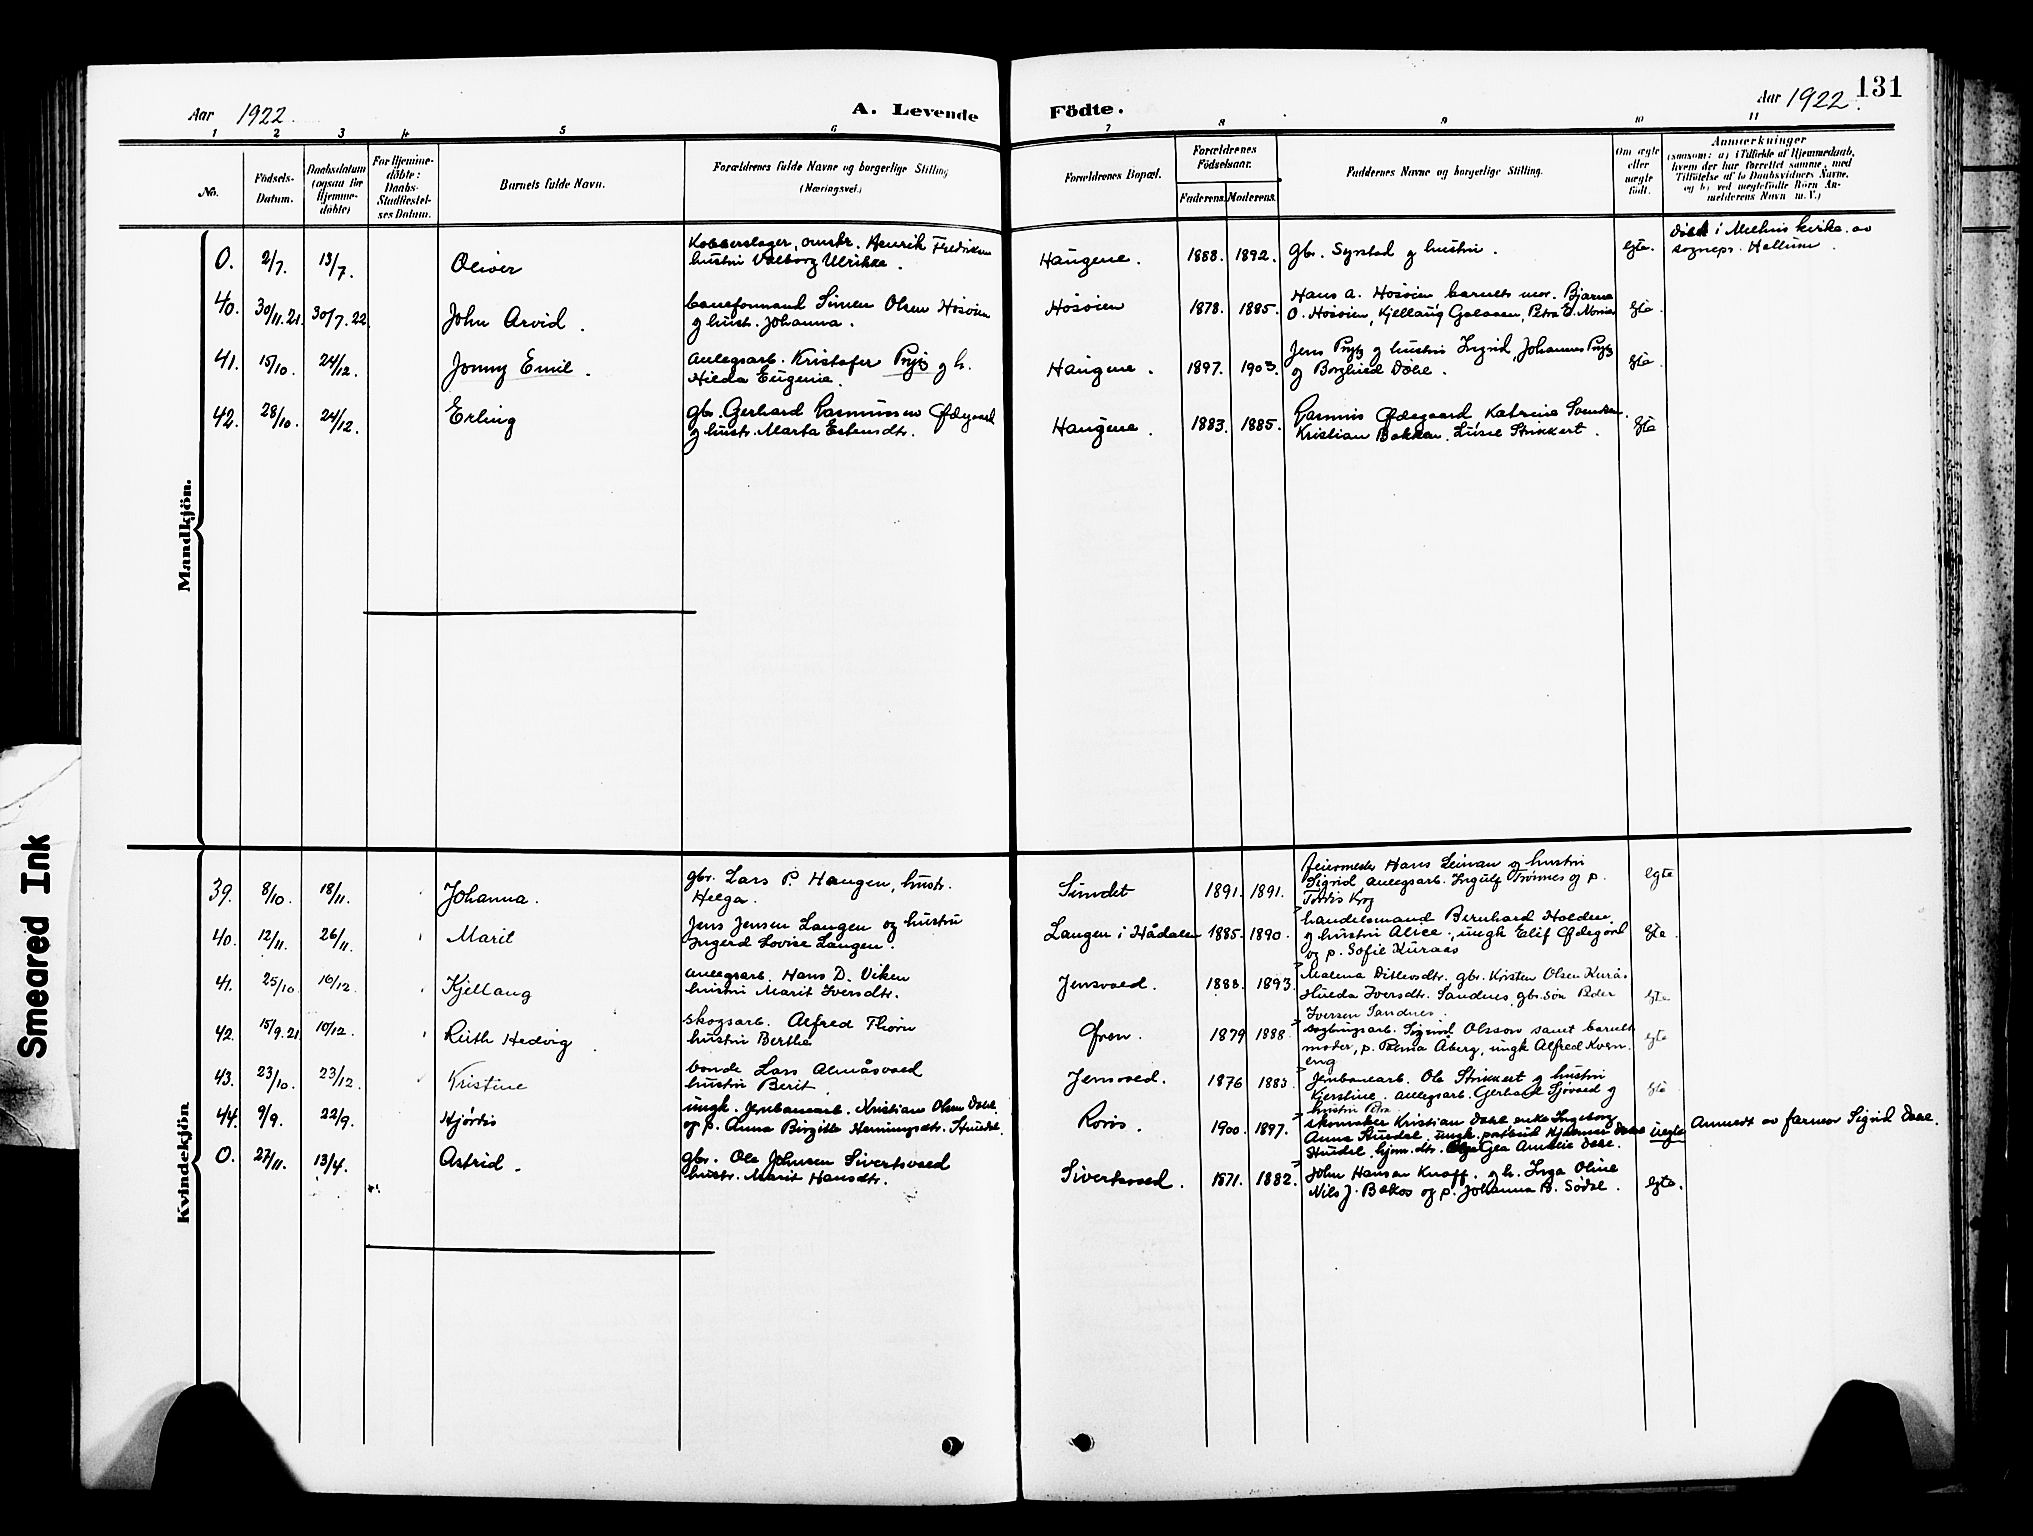 Smeared Ink
Aar 1922. A. Levende Födte. Aar 1922. 131
1 2 3 4 5 6 7 8 9 10 11
No. Födsels-Datum. Daabsdatum (ogsaa for Hjemme-döbte) For Hjemme-döbte: Daabs-Stadfæstel-ses Datum. Barnets fulde Navn. Forældrenes fulde Navne og borgerlige Stilling (Næringsvei.) Forældrenes Bopæl. Forældrenes Födselsaar. Faderens. Moderens. Faddernes Navne og borgerlige Stilling. Om ægte eller uægte født. Anmærkninger (saasom: a) i Tilfælde af Hjemmedaab, hvem der har forrettet samme, med Tilföielse af to Daabsvidners Navne, og b) ved uægtefödte Börn An-melderens Navn m. V.)
Mandkjön.
0. 2/7. 13/7. Oliver Kobberslager, Henrik Fredriksen
hustru Valborg Ulrikke. Haugene. 1888. 1892. gbr. Syrstad og hustru. egte. Døbt i Melhus kirke av
sognepr. Hallum
40. 30/11.21. 30/7.22. John Arvid. baneformand Simen Olsen Hosöien
og hustr. Johanna. Hosöien 1878. 1885. Hans A. Hosöien barnets mor. Bjarne
O. Hosöien, Kjellaug Galaaen, Petra E. egte.
41. 15/10. 24/12. Jonny Emil. anlegsarb. Kristofer Prytz og h.
Hilda Eugenie. Haugene. 1897. 1903. Jens Prytz og hustru Ingrid, Johannes Prytz
og Borghild Döhl. egte
42. 28/10. 24/12. Erling gbr. Gerhard Rasmussen Ødegaard
og hustr. Marta Estensdtr. Haugene. 1883. 1885. Rasmus Ødegaard Katrine Svendsen.
Kristian Bakken. Lusie Strikkert. egte
Kvindekjön
39. 8/10. 18/11. Johanna. gbr. Lars P. Haugen, hustr.
Helga. Sundet 1891. 1891. feiermester Hans Leinan og hustru
Sigrid anlegsarb. Ingulf Trønnes og p.
Tordis Krog egte
40. 12/11. 26/11. Marit Jens Jensen Langen og hustru
Ingerd Lovise Langen. Langen i Hådalen 1885. 1890. handelsmand Bernhard Holden
og hustru Alice., ungk Elif Ødegård
og p. Sofie Kuraas egte.
41. 25/10. 10/12. Kjellaug anlegsarb. Hans D. Viken
hustru Marit Iversdtr. Jensvoed. 1888. 1893. Malena Ditlevsdtr. gbr. Kristen Olsen Kurås
Hulda Iversdtr. Sandnes gbr.søn Peder
Iversen Sandnes. egte
42. 15/9.21. 10/12. Ruth Hedvig. skogsarb. Alfred Thorn
hustru Berthe 1879 1888 Sigrid Olsson samt barnets
moder, p. Palma Åberg, ungk Alfred Kvern
eng egte
43. 23/10. 23/12. Kristine bonde Lars Almåsvoed
hustru Berit Jensvoed. 1876 1883 Jernbanearb. Ole Strikkert og hustru
Kjerstine. anlegsarb. Gerhard Sjövoed og
hustru Petra egte
44. 9/9. 22/9. Hjördis ungk. Jernbanearb. Kristian Olsen Dahl
og p. Anna Birgitte Henningsdtr. Röros. 1900. 1897. skomaker Kristian Dahl enke Ingeborg
Anna ungk. Hjalmar Dahl
hjem. dtr. Gea Amalie Dahl. uegte Anmeldt av farmor Sigrid Dahl.
0. 27/11. 13/4. Astrid. gbr. Ole Johnsen Sivertsvoed
hustr. Marit Hansdtr. Sivertsvoed. 1871. 1882. John Hansen Knoff. og h. Inga Oline
Nils J. Bekos og p. Johanna B. Södal. egte.